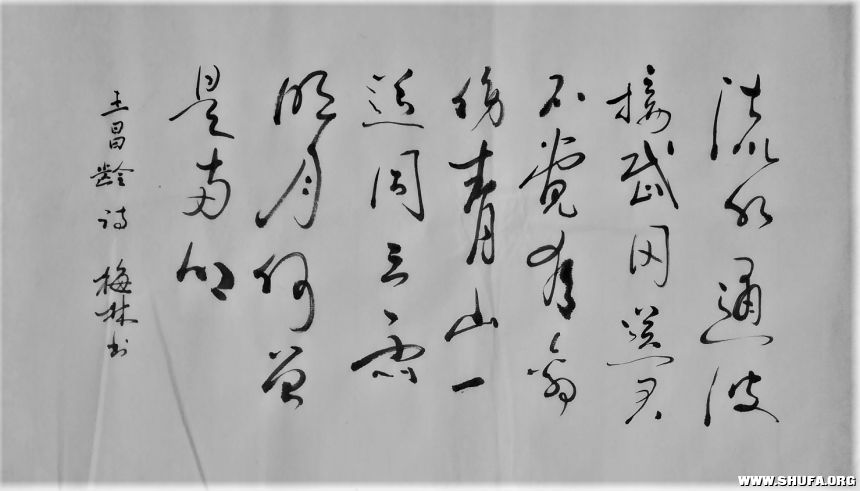 流水通波
接武冈送君
不觉有离
伤青山一
道同云雨
明月何曾
是两乡
王昌龄诗 梅林书
WWW.SHUFA.ORG